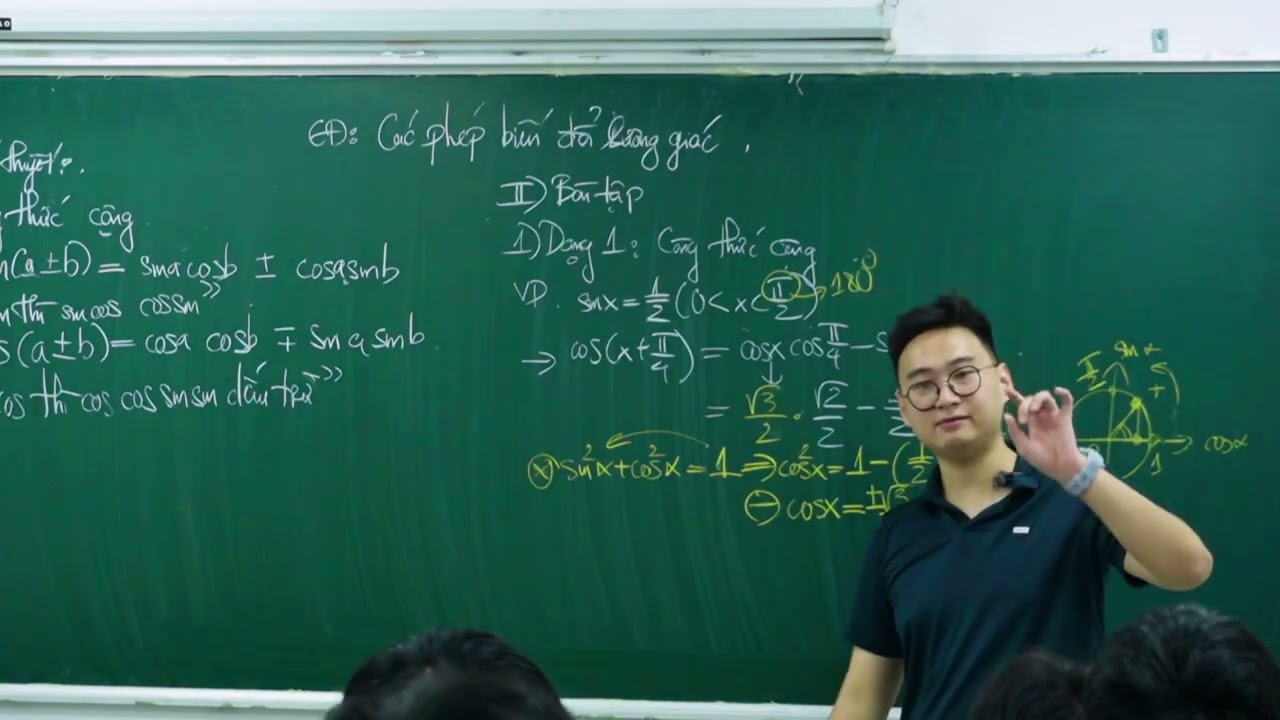 CĐ: Các phép biến đổi lượng giác.
thuyết:
thức cộng.
(a ± b) = sina cosb ± cosa sinb
thì sin cos cos sin"
(a ± b) = cosa cosb ∓ sina sinb
cos thì cos cos sin sin dấu trừ"
II) Bài tập
1) Dạng 1: Công thức cộng
VD: sinx = 1/2 (0 < x < π/2) → 180°
→ cos(x + π/4) = cosx cos π/4 -
= √3/2 . √2/2 -
ⓧ sin²x + cos²x = 1 ⇒ cos²x = 1 - (1/2
⊖ cosx = ±√3
sin x
π/2
+
cosx
1
0